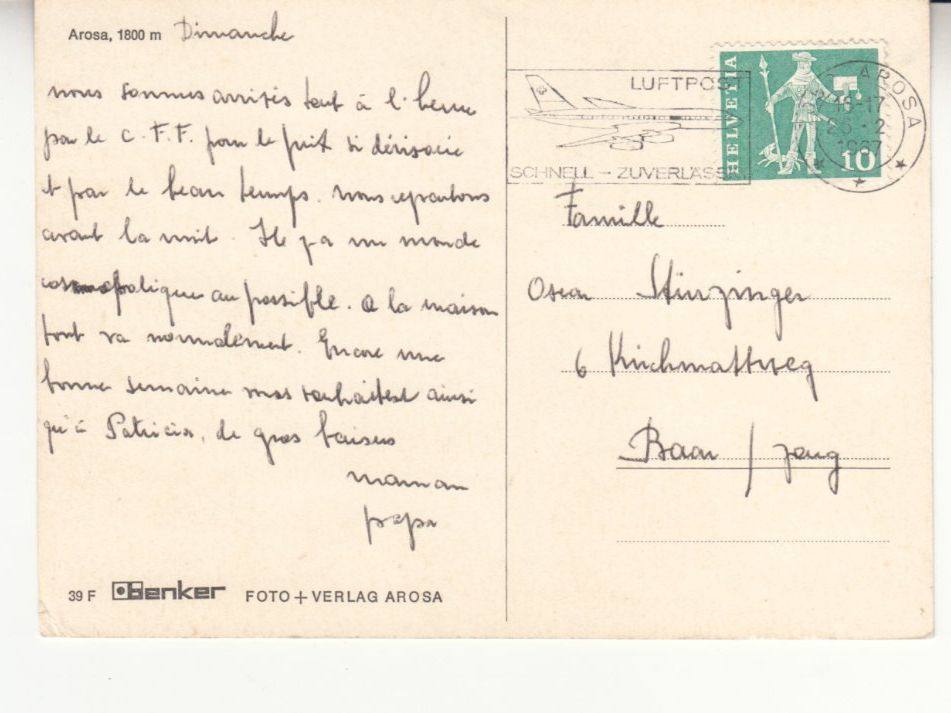 Arosa, 1800 m Dimanche
nous sommes arrivés tout à l'heure
par le C.F.F. pour le prix si dérisoire
et par le beau temps. nous repartons
avant la nuit. Il y a un monde
cosmopolique au possible. a la maison
tout va normalement. Encore une
bonne semaine vous souhaitent ainsi
qu'à Patricia, de gros baisers
maman
papa
39 F Benker FOTO + VERLAG AROSA
LUFTPOST
SCHNELL - ZUVERLÄSS
HELVETIA
10
AROSA
16-17
1967
Famille
Oscar Stinzinger
6 Kirchmattweg
Baar / Zoug